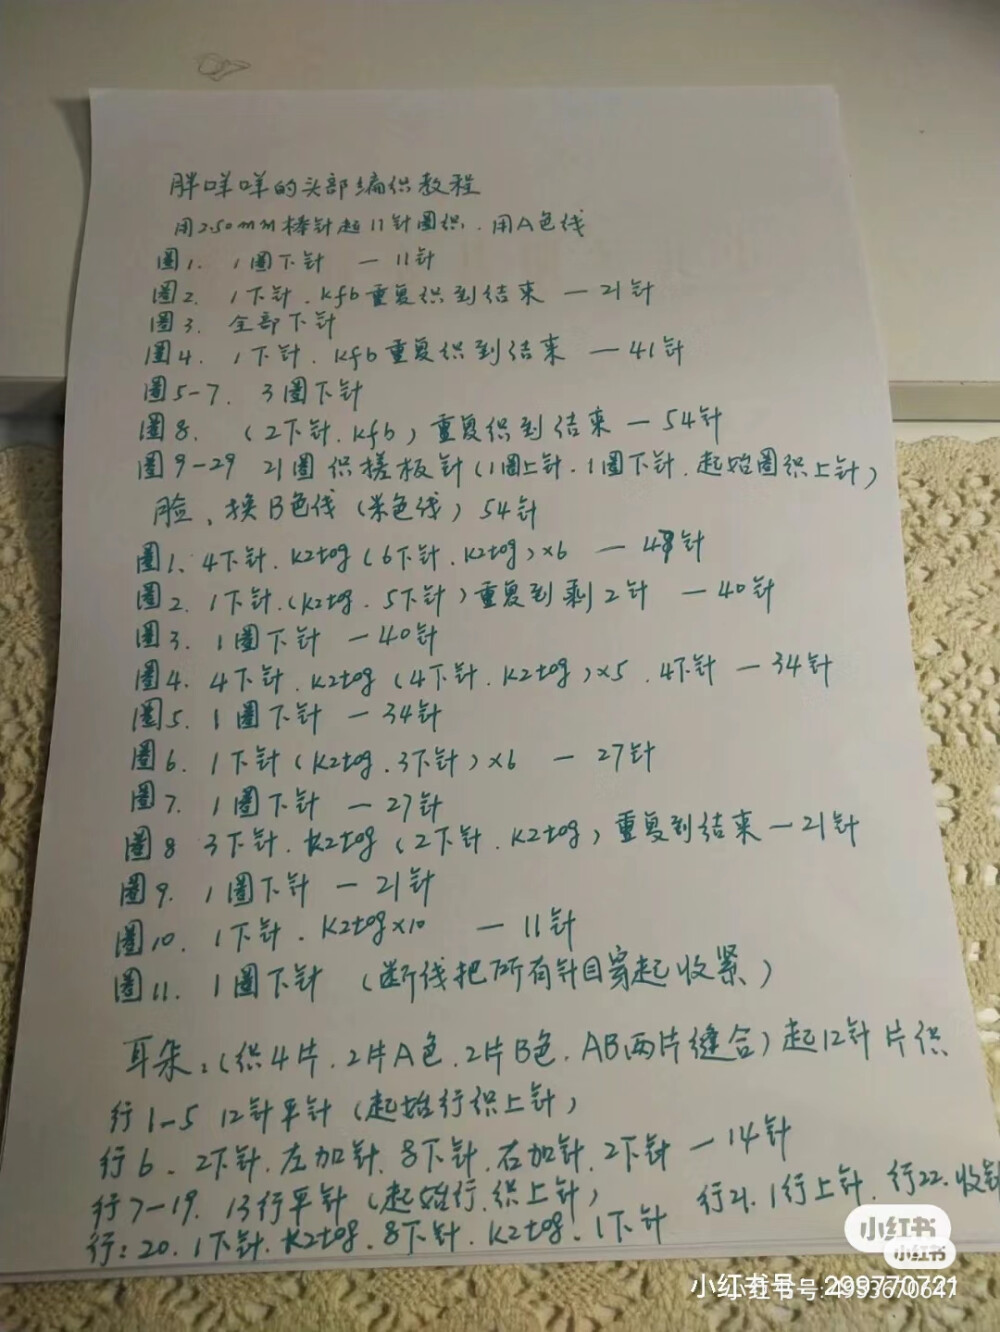 胖咩咩的头部编织教程
用2.50mm棒针起11针圈织.用A色线
圈1. 1圈下针 — 11针
圈2. 1下针.kfb重复织到结束 — 21针
圈3. 全部下针
圈4. 1下针.kfb重复织到结束 — 41针
圈5-7. 3圈下针
圈8. (2下针.kfb)重复织到结束 — 54针
圈9-29 21圈织搓板针(1圈上针.1圈下针.起始圈织上针)
脸、换B色线(米色线)54针
圈1、4下针.k2tog(6下针.k2tog)×6 — 47针
圈2. 1下针.(k2tog.5下针)重复到剩2针 — 40针
圈3. 1圈下针 — 40针
圈4. 4下针.k2tog(4下针.k2tog)×5.4下针 — 34针
圈5. 1圈下针 — 34针
圈6. 1下针(k2tog.3下针)×6 — 27针
圈7. 1圈下针 — 27针
圈8 3下针.k2tog(2下针.k2tog)重复到结束 — 21针
圈9. 1圈下针 — 21针
圈10. 1下针.k2tog×10 — 11针
圈11. 1圈下针 (断线把所有针目穿起收紧)
耳朵:(织4片.2片A色.2片B色.AB两片缝合)起12针片织
行1-5 12针平针(起始行织上针)
行6、2下针.左加针.8下针.右加针.2下针 — 14针
行7-19. 13行平针(起始行.织上针)
行21.1行上针.行22.收针
行:20.1下针.k2tog.8下针.k2tog.1下针
小红书
小红书
小红书号:299770721